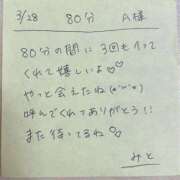 3/28　80分　A様
80分の間に3回もイって
くれて嬉しいよ♡♡
やっと会えたね(*´`*)
呼んでくれてありがとう!!
また待ってるね♡
みと